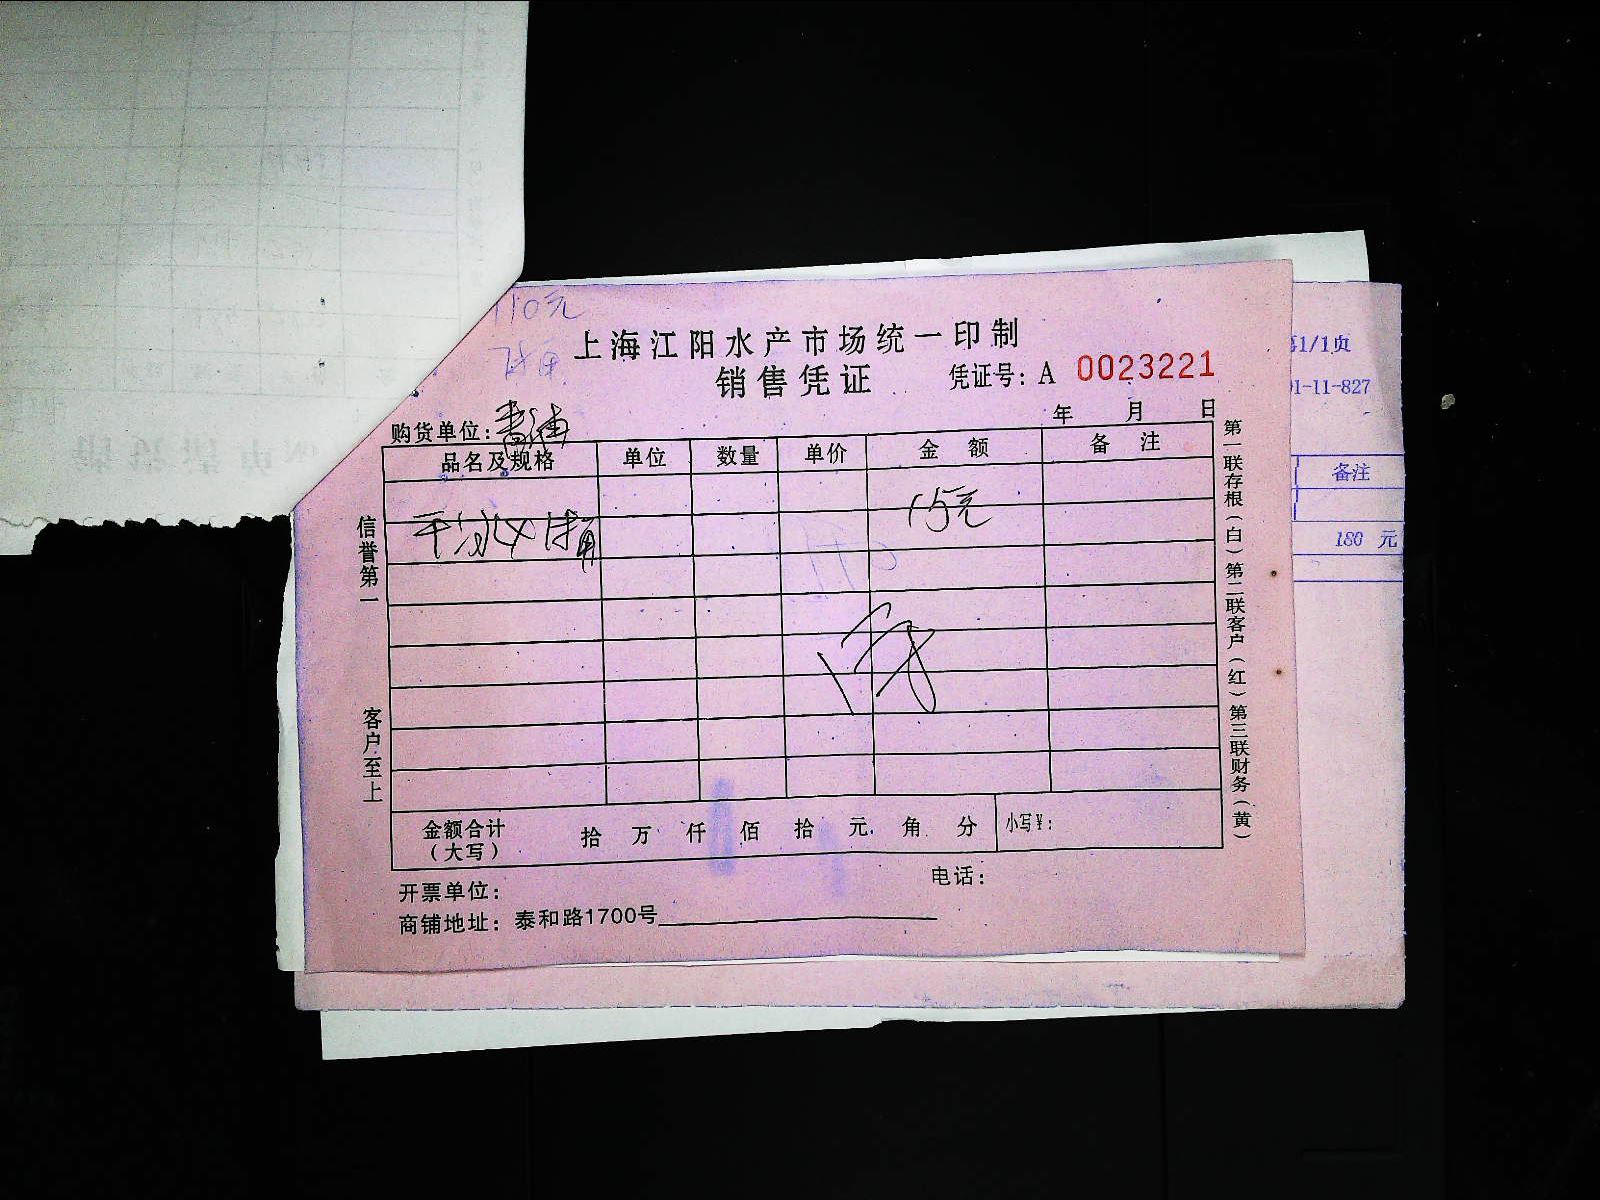 110元
上海江阳水产市场统一印制
销售凭证
凭证号: A 0023221
年 月 日
购货单位: 青浦
品名及规格 单位 数量 单价 金额 备注
15元
信誉第一
客户至上
第一联存根(白)第二联客户(红)第三联财务(黄)
金额合计
(大写)
拾 万 仟 佰 拾 元 角 分 小写¥:
开票单位:
电话:
商铺地址: 泰和路1700号
1/1页
1-11-827
备注
180 元